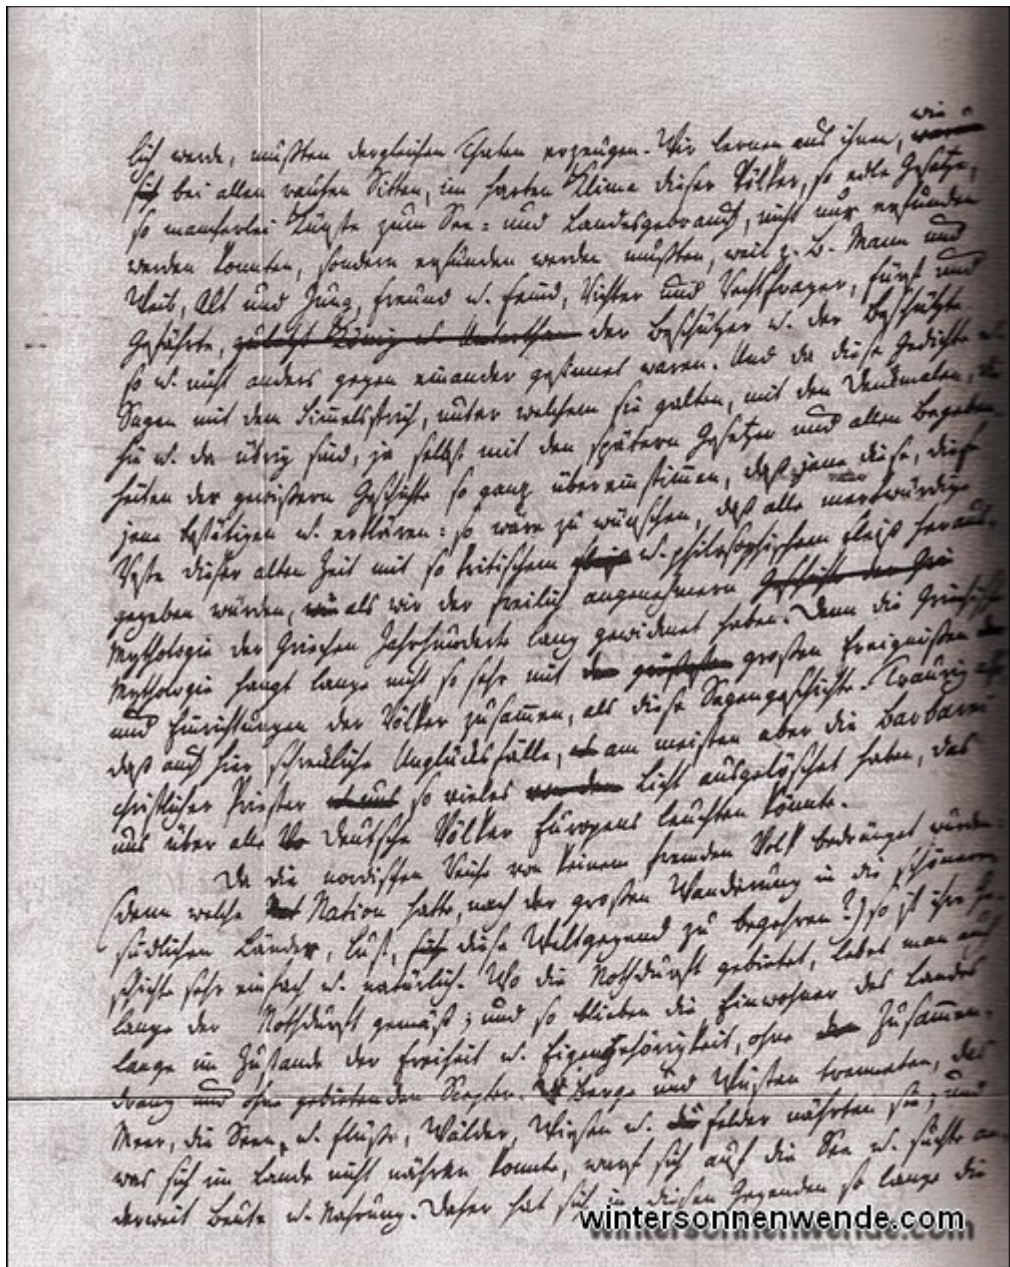 wie
lich werde, mußten dergleichen Thaten erzeugen. Wir lernen aus ihnen,
sich bei allen rauhen Sitten, im harten Klima dieser Völker, so edle Gesetze,
so mancherlei Künste zum See- und Landesgebrauch, nicht nur erfunden
werden konnten, sondern erfunden werden mußten, weil z. B. Mann und
Weib, Alt und Jung, Freund u. Feind, Richter und Rechtfrager, Fürst und
Gefährte, zuletzt König u. Unterthan der Beschützer u. der Beschützte
so u. nicht anders gegen einander gesinnet waren. Und da diese Gedichte u.
Sagen mit dem Himmelsstrich, unter welchem sie galten, mit den Denkmalen, die
hie u. da übrig sind, ja selbst mit den spätern Gesetzen und allen Begeben-
heiten der gewißern Geschichte so ganz übereinstimmen, daß jene diese, diese
jene bestätigen u. erklären: so wäre zu wünschen, daß alle merkwürdige
Reste dieser alten Zeit mit so kritischem u. philosophischem Fleiß heraus-
gegeben würden, als wir der freilich angenehmern Geschichte der Gri
Mythologie der Griechen Jahrhunderte lang gewidmet haben. Denn die Griechische
Mythologie hangt lange nicht so sehr mit den größesten großen Ereignißen
und Einrichtungen der Völker zusammen, als diese Sagengeschichte. Traurig ists
daß auch hier schreckliche Unglücksfälle, am meisten aber die Barbarei
christlicher Priester so vieles Licht ausgelöschet haben, das
uns über alle Vo Deutsche Völker Europens leuchten könnte.
Da die nordischen Reiche von keinem fremden Volk bedränget wurden:
(denn welche Nation hatte, nach der großen Wanderung in die schönern
südlichen Länder, Lust, sich diese Weltgegend zu begehren?) so ist ihre Ge-
schichte sehr einfach u. natürlich. Wo die Nothdurft gebietet, lebet man auch
lange der Nothdurft gemäß; und so blieben die Einwohner des Landes
lange im Zustande der Freiheit u. Eigengehörigkeit, ohne den Zusammen-
drang und ohne gebietenden Scepter. Berge und Wüsten trenneten, das
Meer, die Seen, u. Flüße, Wälder, Wiesen u. die Felder nährten sie; und
was sich im Lande nicht nähren konnte, warf sich auf die See u. suchte an-
derweit Beute u. Nahrung. Daher hat sich in diesen Gegenden so lange die
wintersonnenwende.com